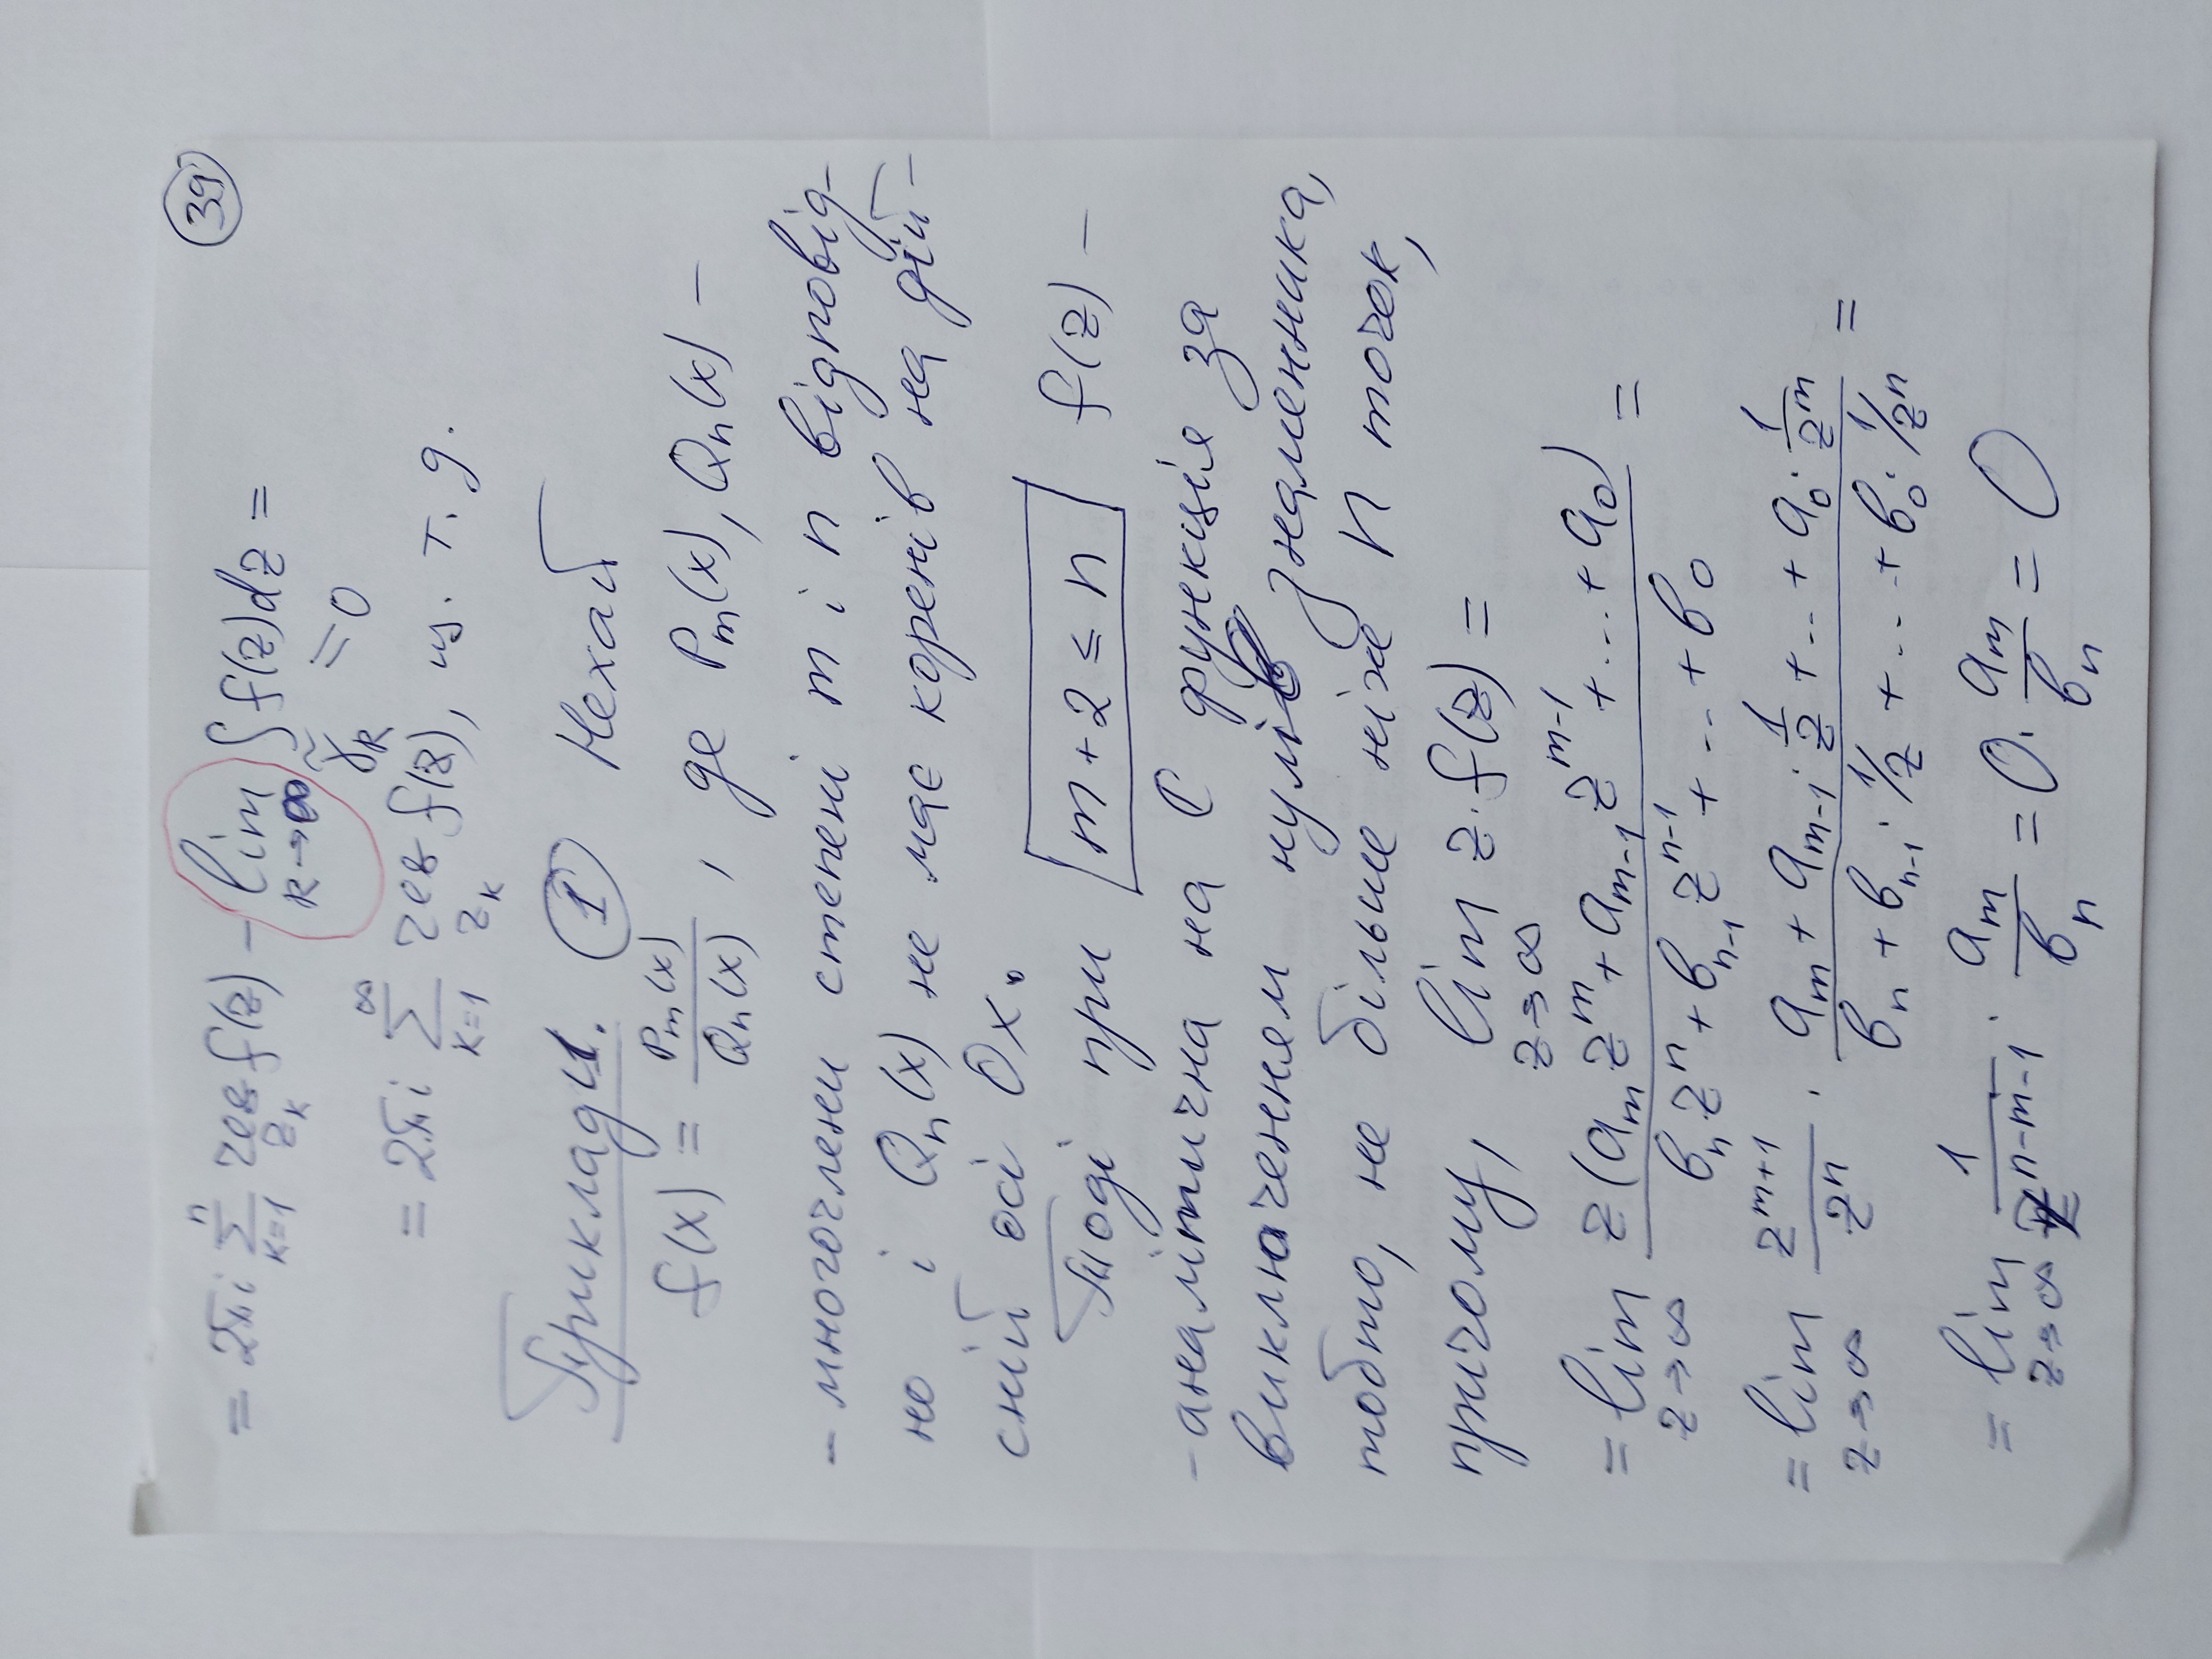 39
= 2πi \sum_{k=1}^{n} res_{z_k} f(z) - lim_{R→∞} ∫_{\tilde{γ}_R} f(z)dz =
= 0
= 2πi \sum_{k=1}^{∞} res_{z_k} f(z), щ. т. д.
Приклади. ① Нехай
f(x) = \frac{P_m(x)}{Q_n(x)}, де P_m(x), Q_n(x) –
– многочлени степені m і n відповід-
но і Q_n(x) не має коренів на дій-
сній осі Ox.
Тоді при m + 2 ≤ n f(z) –
– аналітична на ℂ функція за
виключенням нулів знаменника,
тобто, не більше ніж n точок,
причому, lim_{z→∞} z·f(z) =
= lim_{z→∞} \frac{z(a_m z^m + a_{m-1} z^{m-1} + ... + a_0)}{b_n z^n + b_{n-1} z^{n-1} + ... + b_0} =
= lim_{z→∞} \frac{z^{m+1}}{z^n} · \frac{a_m + a_{m-1}·\frac{1}{z} + ... + a_0·\frac{1}{z^m}}{b_n + b_{n-1}·1/z + ... + b_0·1/z^n} =
= lim_{z→∞} \frac{1}{z^{n-m-1}} · \frac{a_m}{b_n} = 0·\frac{a_m}{b_n} = 0